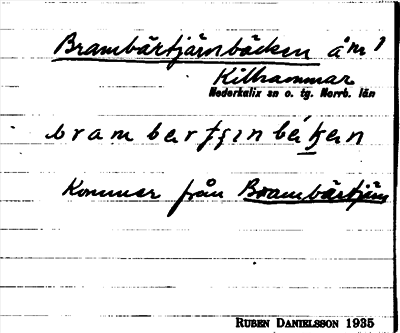 Brambärtjärnbäcken å m 1
Kilhammar
Nederkalix sn o. tg. Norrb. län
Kommer från Brambärtjärn
RUBEN DANIELSSON 1935